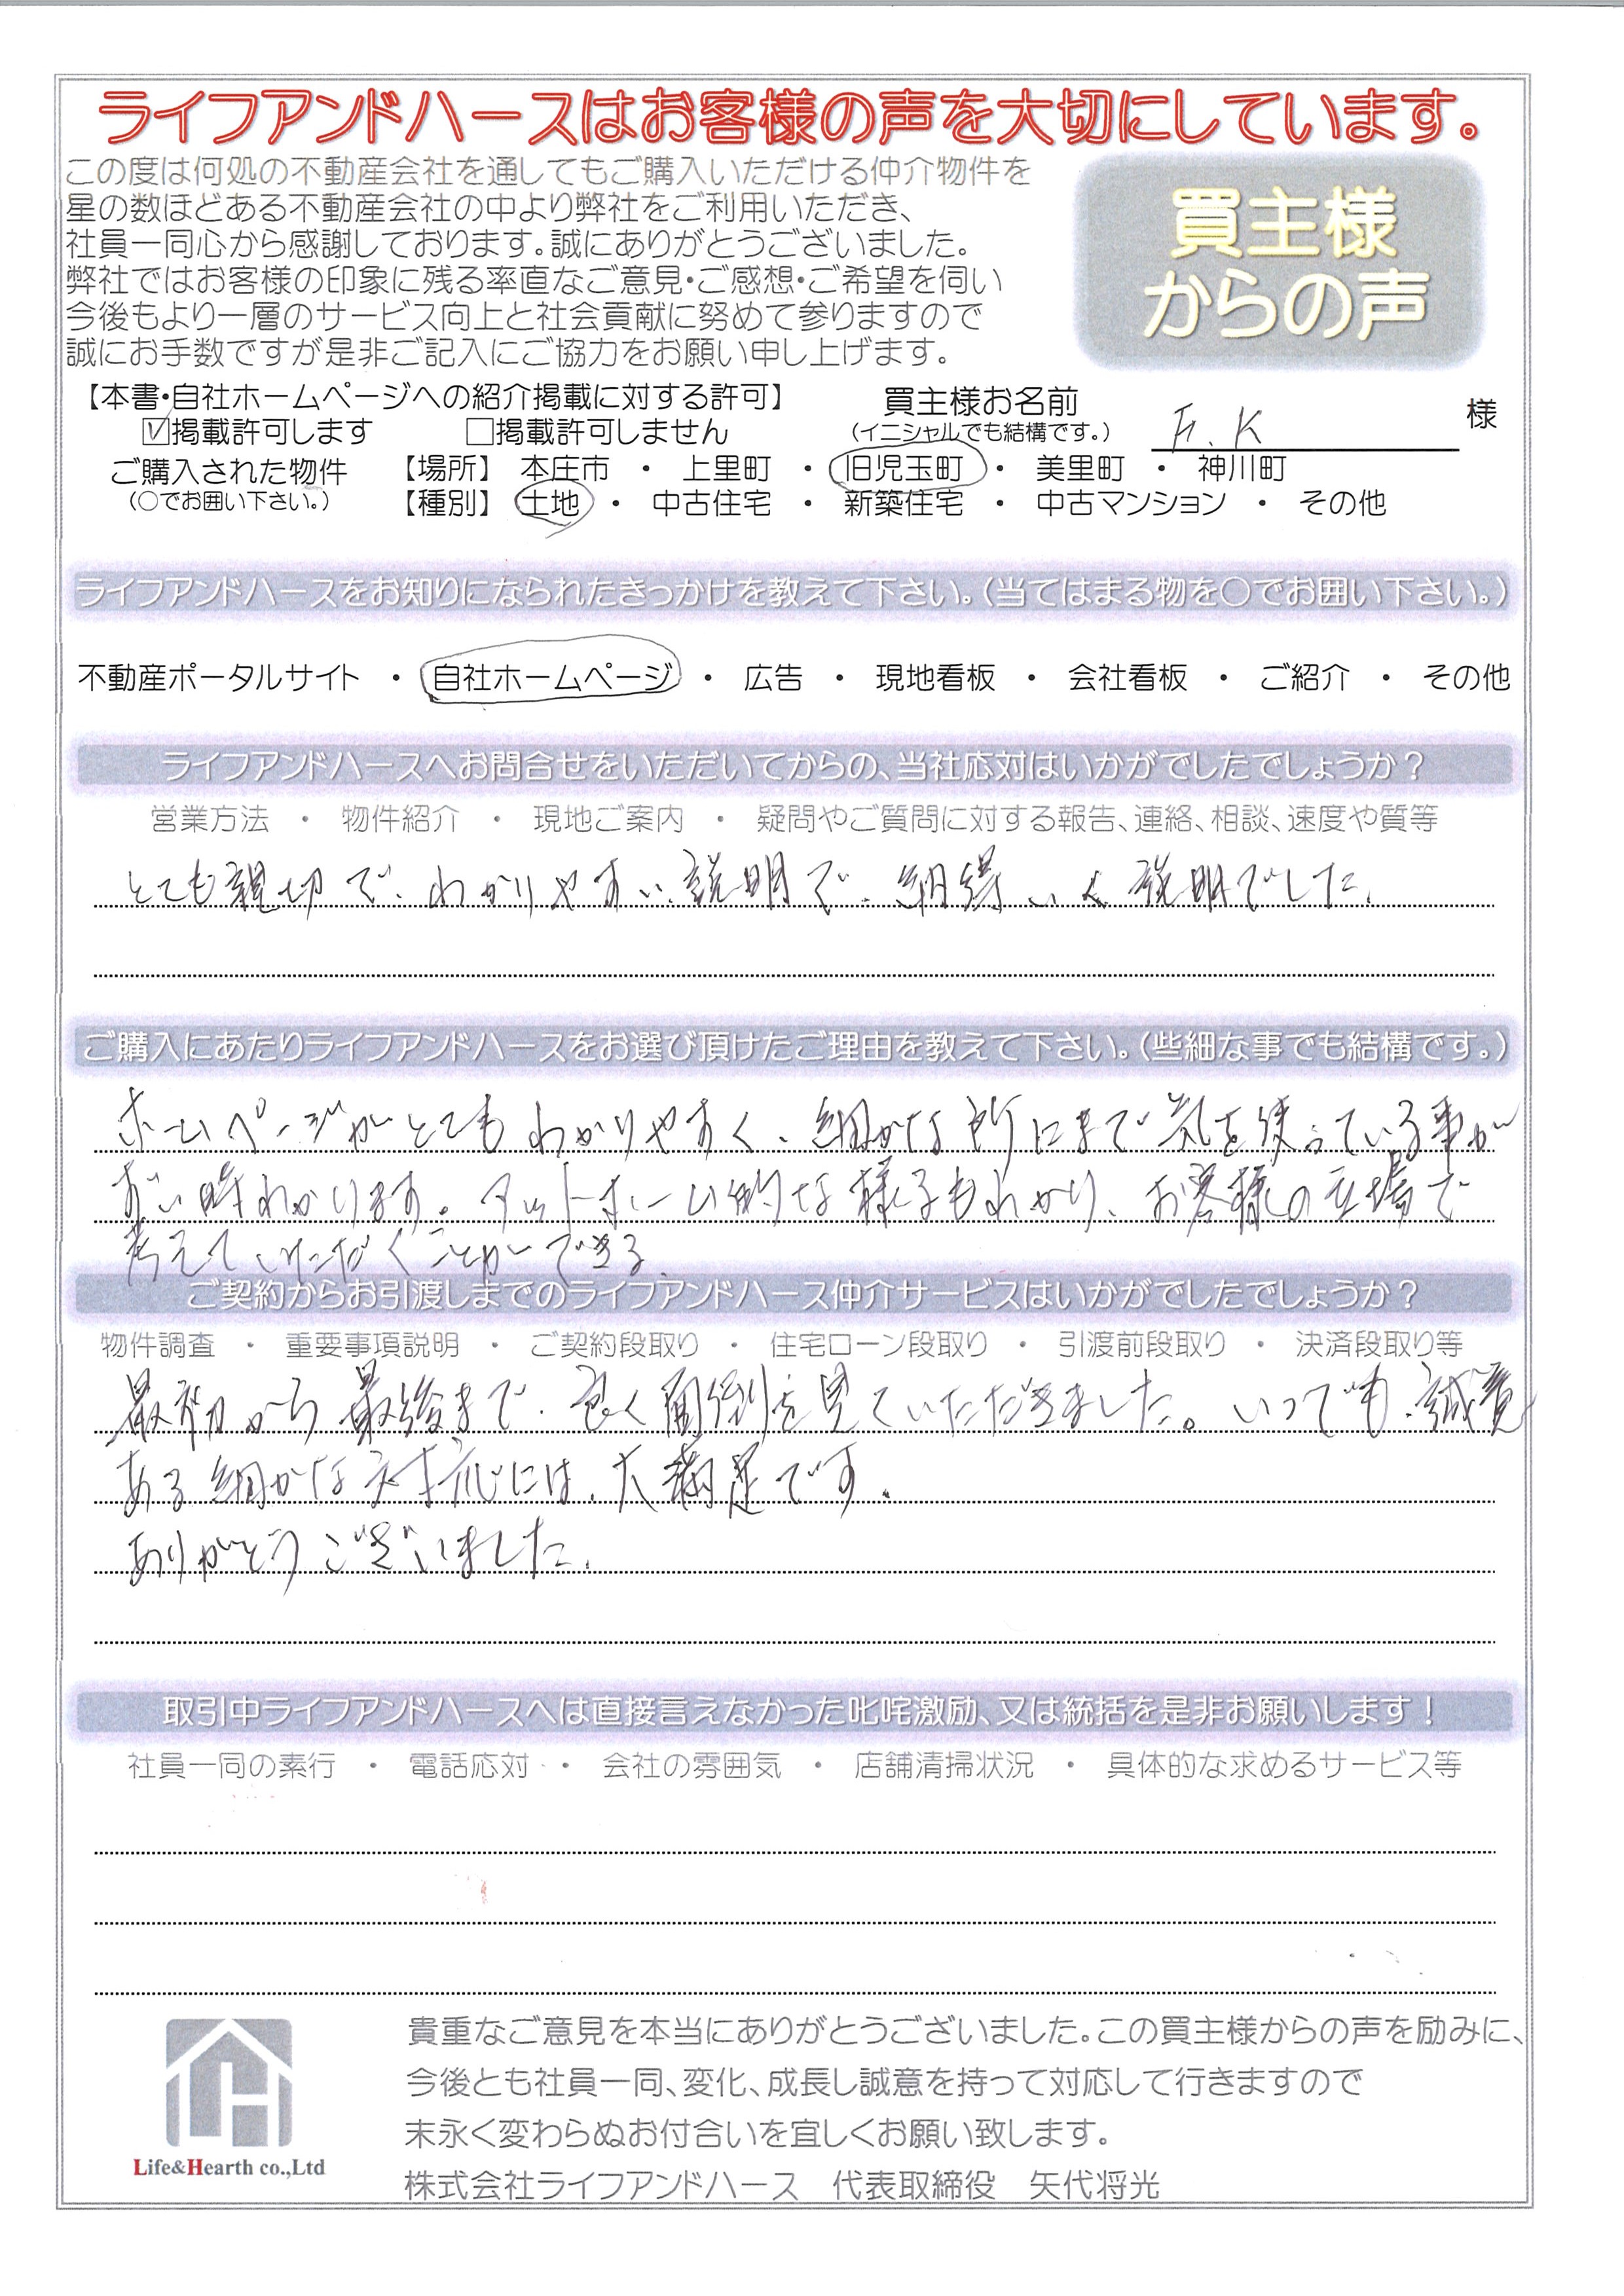 ライフアンドハースはお客様の声を大切にしています。
この度は何処の不動産会社を通してもご購入いただける仲介物件を
星の数ほどある不動産会社の中より弊社をご利用いただき、
社員一同心から感謝しております。誠にありがとうございました。
弊社ではお客様の印象に残る率直なご意見・ご感想・ご希望を伺い
今後もより一層のサービス向上と社会貢献に努めて参りますので
誠にお手数ですが是非ご記入にご協力をお願い申し上げます。
買主様
からの声
【本書・自社ホームページへの紹介掲載に対する許可】
☑掲載許可します □掲載許可しません
買主様お名前
(イニシャルでも結構です。)
F.K 様
ご購入された物件 【場所】 本庄市 ・ 上里町 ・ 旧児玉町 ・ 美里町 ・ 神川町
(○でお囲い下さい。) 【種別】 土地 ・ 中古住宅 ・ 新築住宅 ・ 中古マンション ・ その他
ライフアンドハースをお知りになられたきっかけを教えて下さい。(当てはまる物を○でお囲い下さい。)
不動産ポータルサイト ・ 自社ホームページ ・ 広告 ・ 現地看板 ・ 会社看板 ・ ご紹介 ・ その他
ライフアンドハースへお問合せをいただいてからの、当社応対はいかがでしたでしょうか?
営業方法 ・ 物件紹介 ・ 現地ご案内 ・ 疑問やご質問に対する報告、連絡、相談、速度や質等
とても親切で、わかりやすい説明で、納得いく説明でした。
ご購入にあたりライフアンドハースをお選び頂けたご理由を教えて下さい。(些細な事でも結構です。)
ホームページがとてもわかりやすく、細かな所にまで気を使っている事が
わかります。アットホーム的な様子もわかり、お客様の立場で
考えていただくことができる。
ご契約からお引渡しまでのライフアンドハース仲介サービスはいかがでしたでしょうか?
物件調査 ・ 重要事項説明 ・ ご契約段取り ・ 住宅ローン段取り ・ 引渡前段取り ・ 決済段取り等
最初から最後まで、良く面倒を見ていただきました。いつでも、誠意
ある細かな対応には、大満足です。
ありがとうございました。
取引中ライフアンドハースへは直接言えなかった叱咤激励、又は統括を是非お願いします!
社員一同の素行 ・ 電話応対 ・ 会社の雰囲気 ・ 店舗清掃状況 ・ 具体的な求めるサービス等
貴重なご意見を本当にありがとうございました。この買主様からの声を励みに、
今後とも社員一同、変化、成長し誠意を持って対応して行きますので
末永く変わらぬお付合いを宜しくお願い致します。
Life&Hearth co.,Ltd
株式会社ライフアンドハース 代表取締役 矢代将光